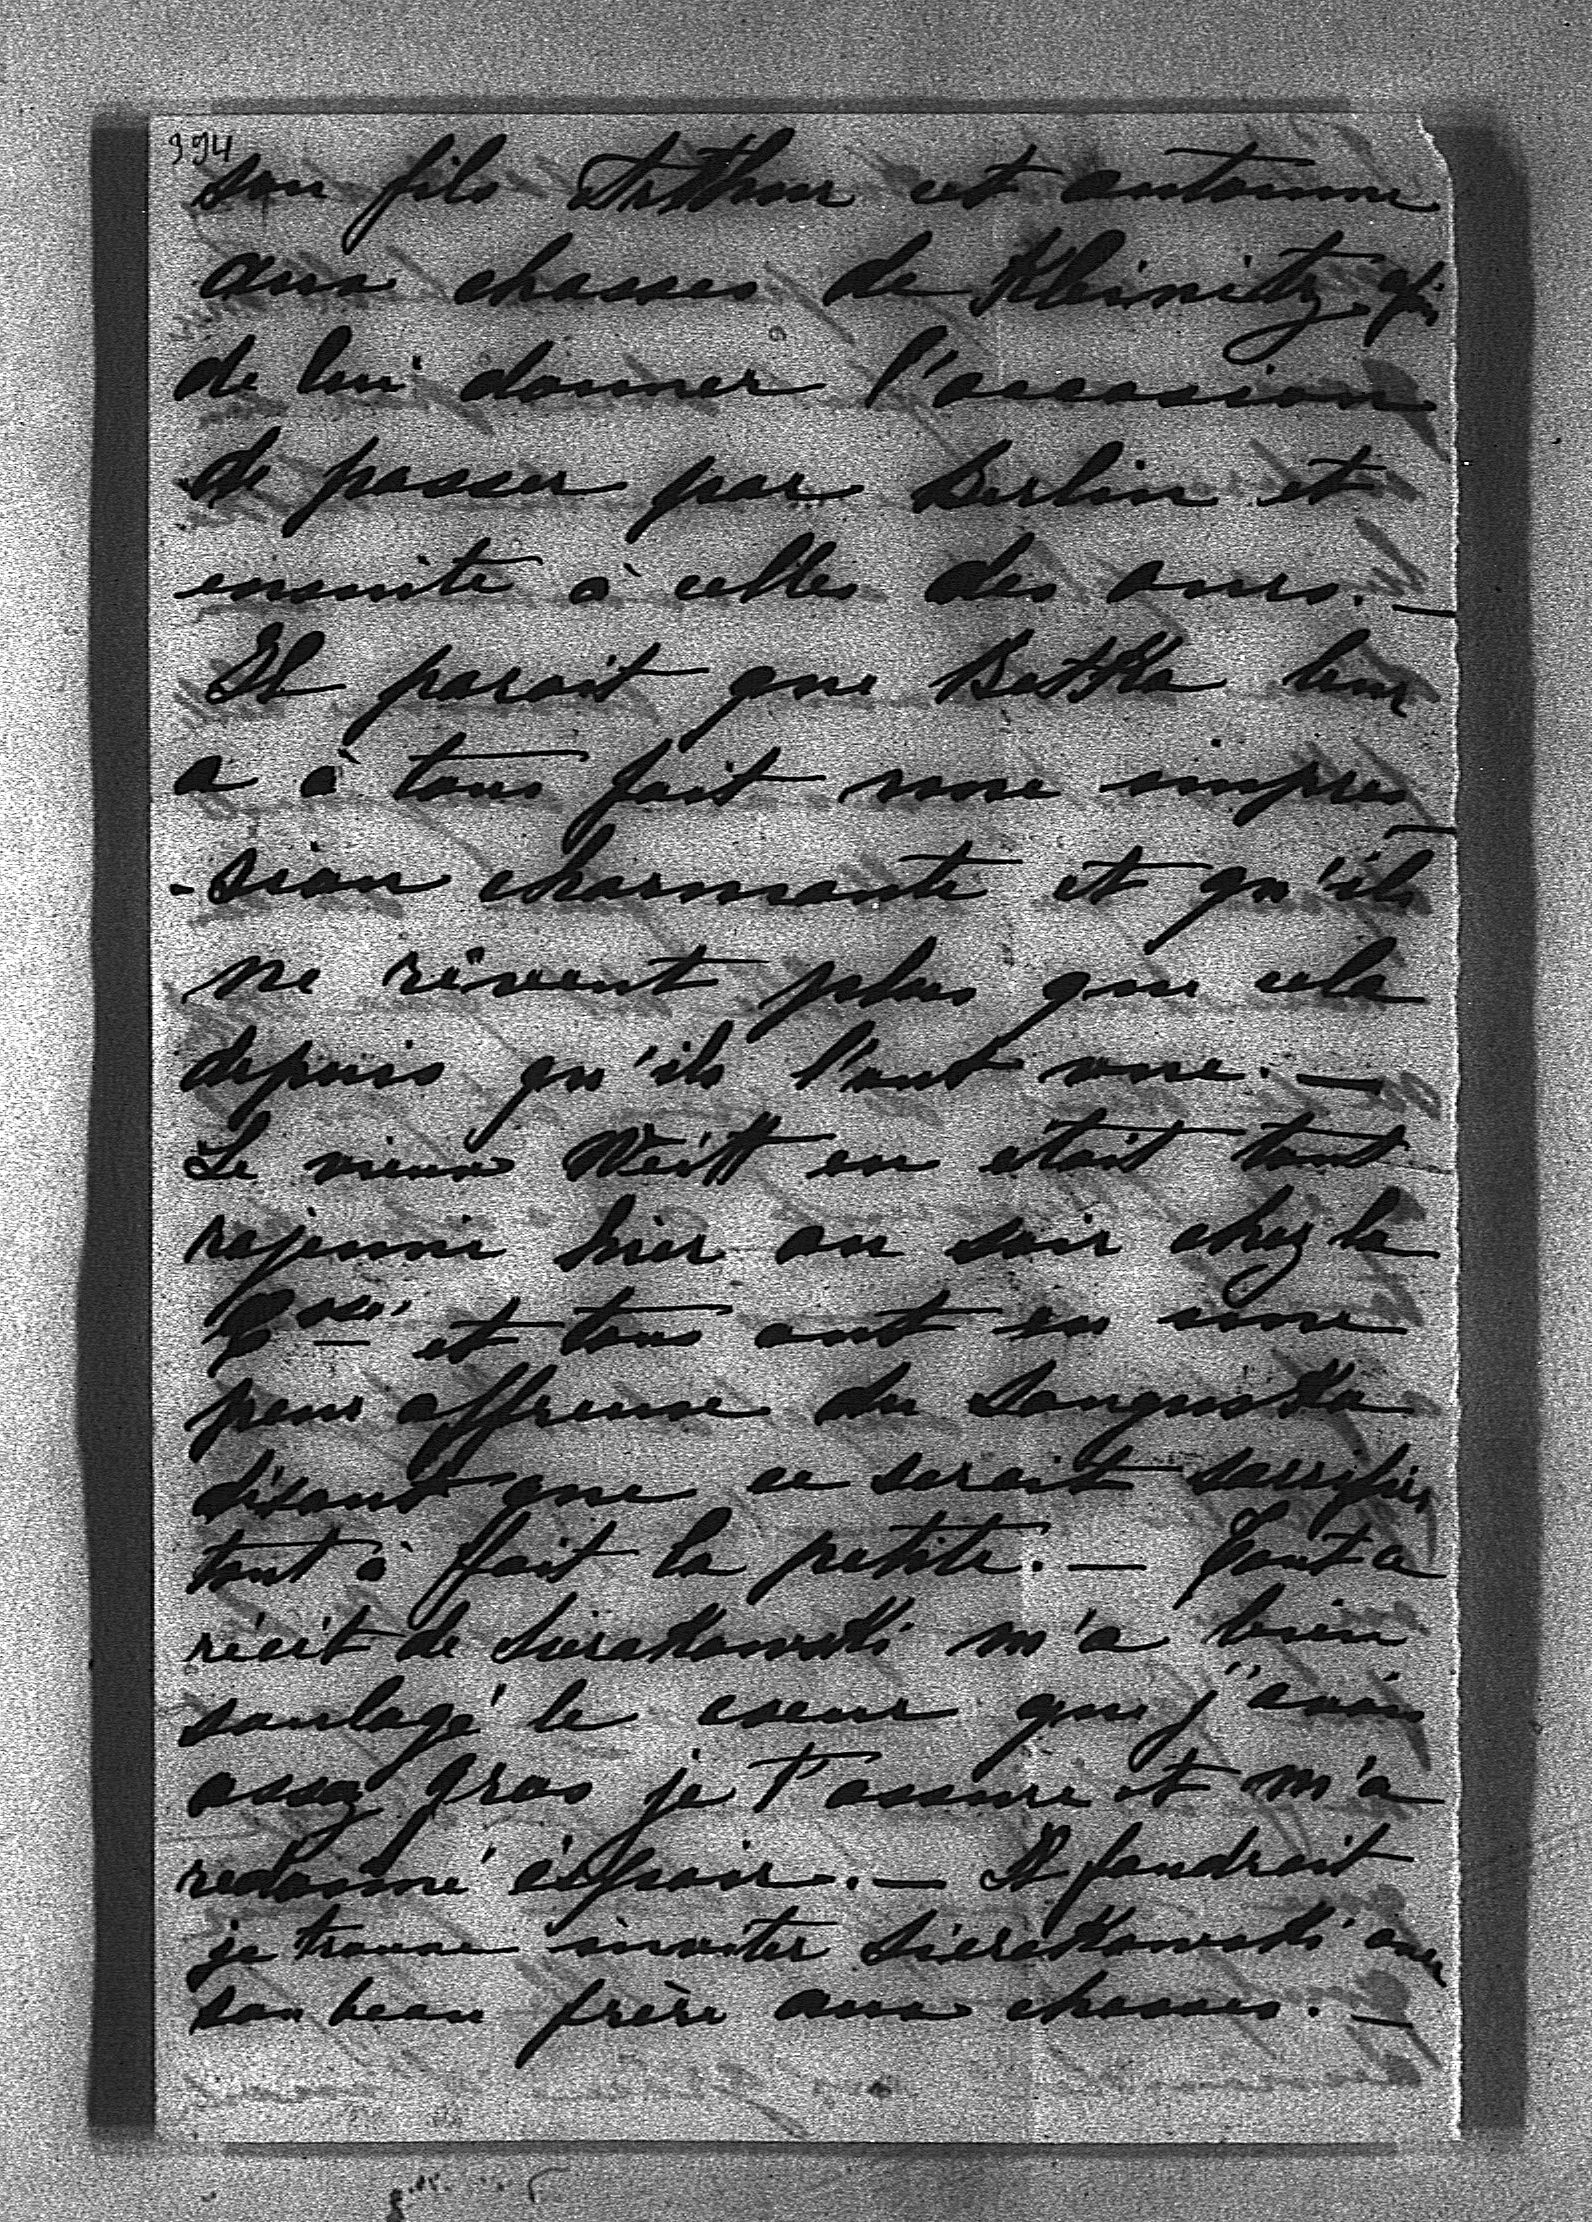 394
son fils Arthur cet automne
aux chasses de Kleinitz afin
de leur donner l'occasion
de passer par Berlin et
ensuite à celles des ours. —
Il parait que Betka leur
a à tous fait une impres
-sion charmante et qu'ils
ne rêvent plus que cela
depuis qu'ils l'ont vue. —
Le vieux en était tout
rejeuni hièr au soir chez la
et tous ont eu une
peur affreuse du Sanguszko
disant que ce serait sacrifier
tout à fait la petite. — Tout ce
récit de Sierakowski m'a bien
soulagé le coeur que j'avais
assez gros je t'assure et m'a
redonné éspoir. — Il faudrait
je trouve inviter Sierakowski avec
son beau frère aux chasses. —